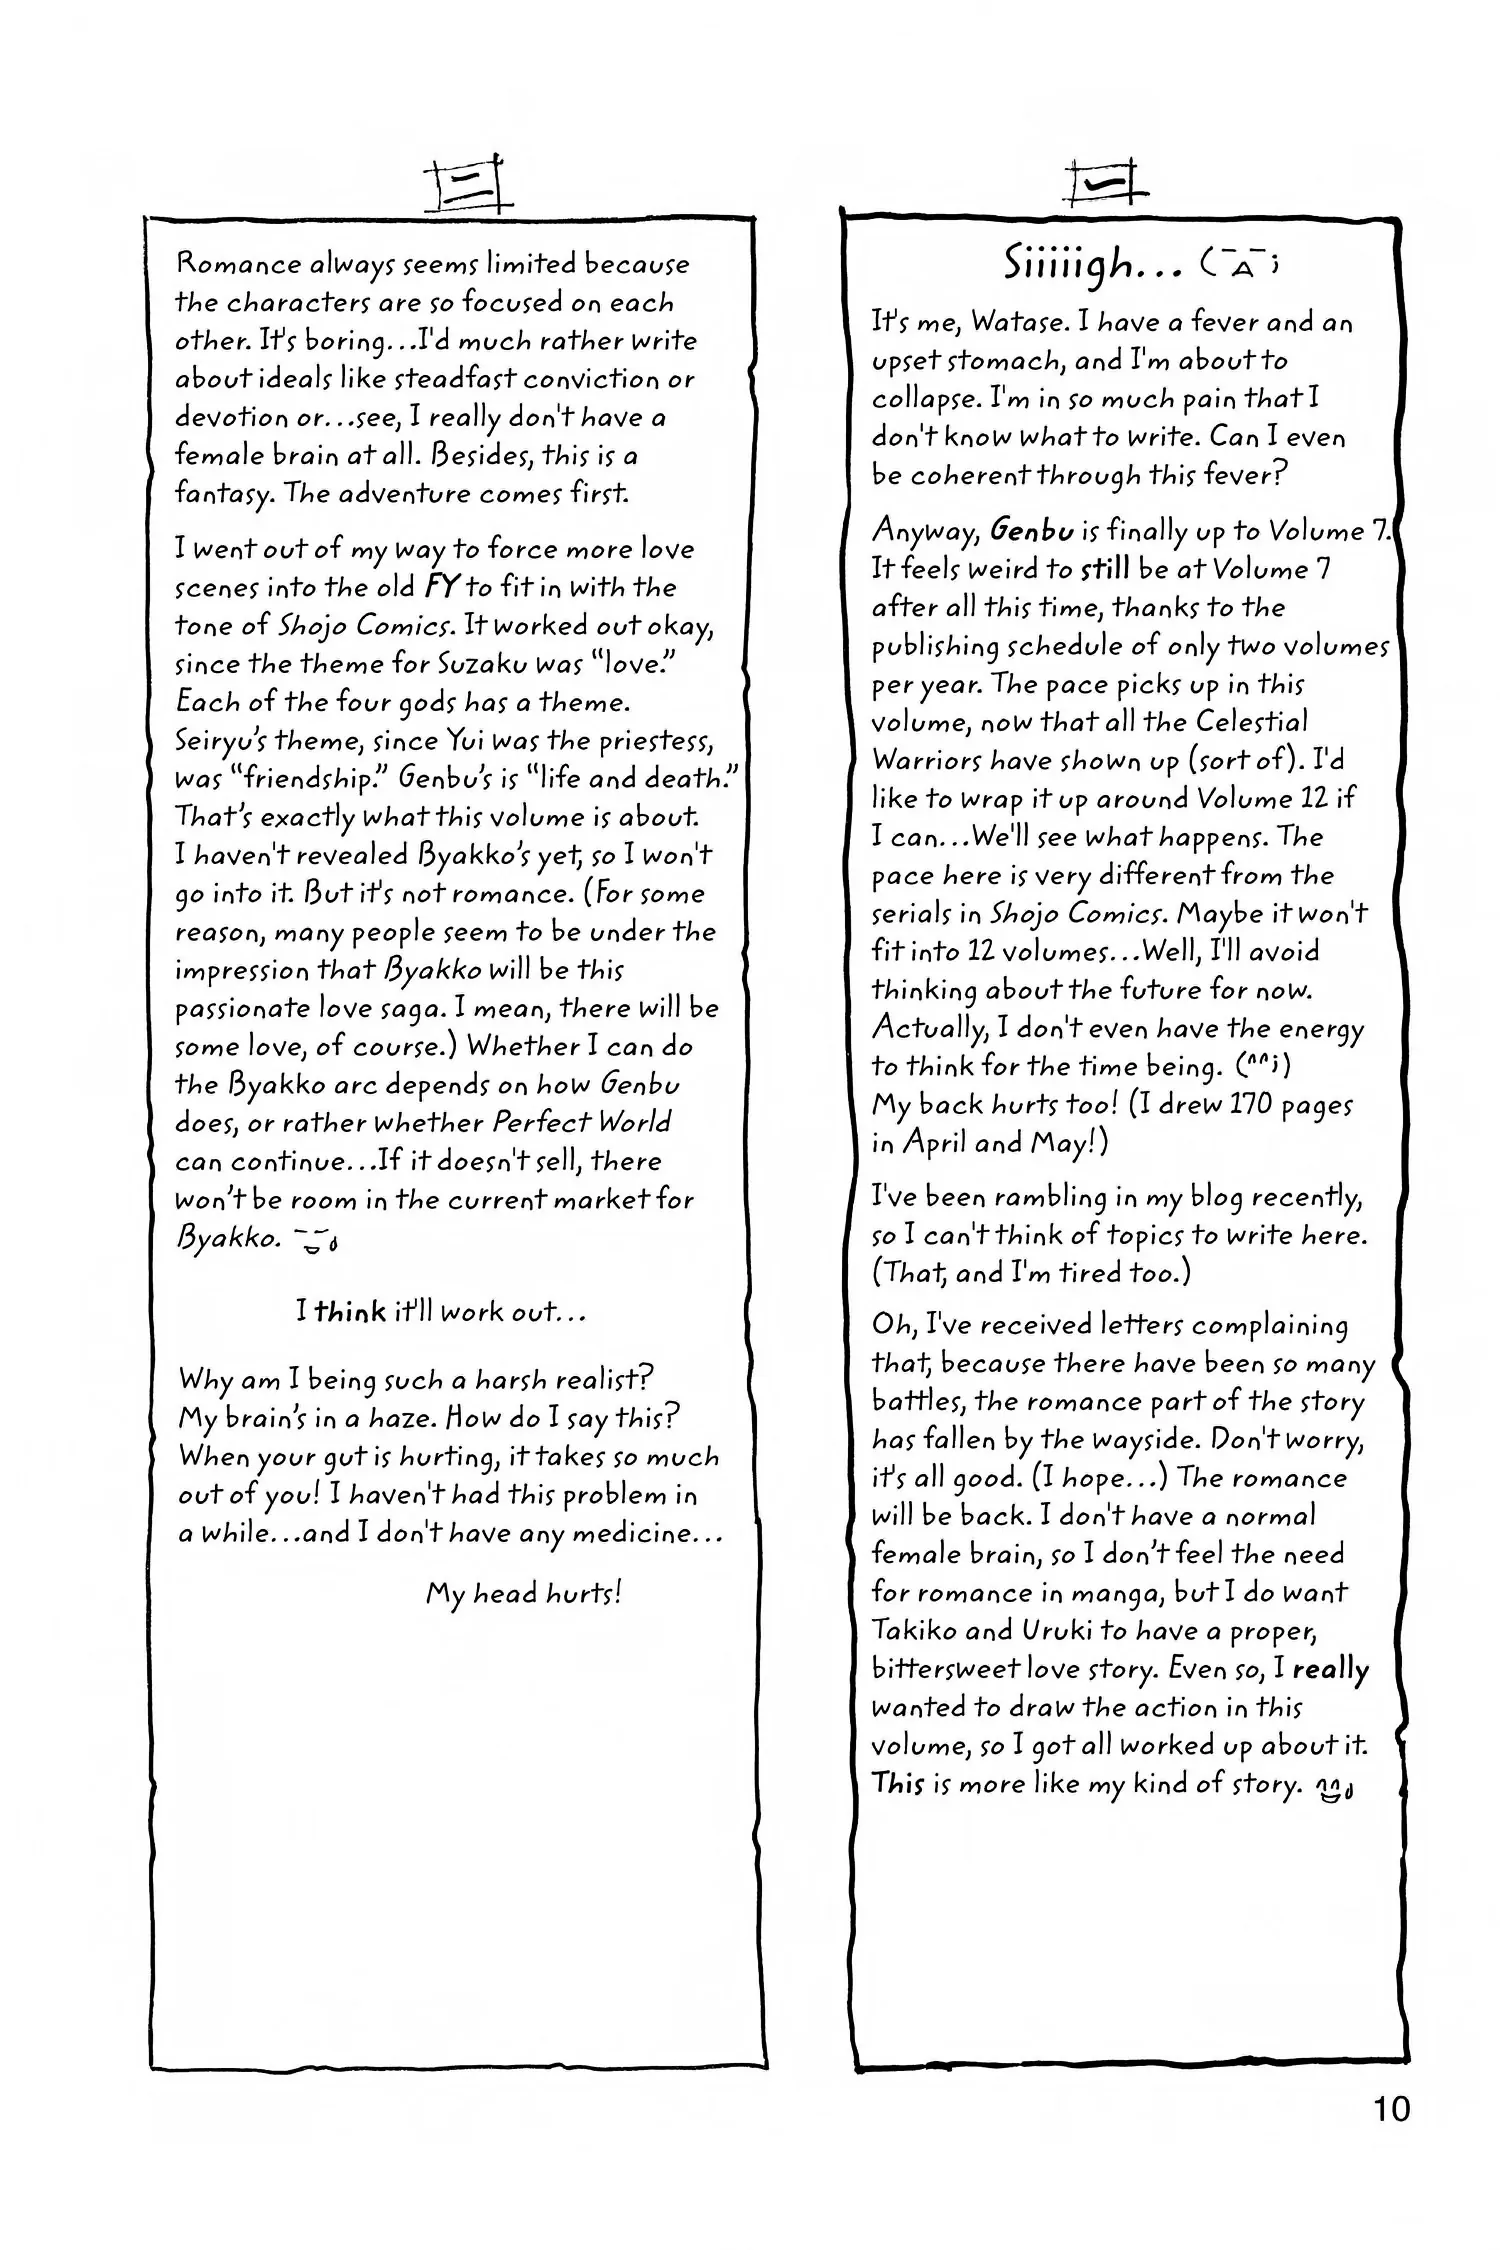 一
Siiiiigh...
It's me, Watase. I have a fever and an
upset stomach, and I'm about to
collapse. I'm in so much pain that I
don't know what to write. Can I even
be coherent through this fever?
Anyway, Genbu is finally up to Volume 7.
It feels weird to still be at Volume 7
after all this time, thanks to the
publishing schedule of only two volumes
per year. The pace picks up in this
volume, now that all the Celestial
Warriors have shown up (sort of). I'd
like to wrap it up around Volume 12 if
I can...We'll see what happens. The
pace here is very different from the
serials in Shojo Comics. Maybe it won't
fit into 12 volumes...Well, I'll avoid
thinking about the future for now.
Actually, I don't even have the energy
to think for the time being. (^^;)
My back hurts too! (I drew 170 pages
in April and May!)
I've been rambling in my blog recently,
so I can't think of topics to write here.
(That, and I'm tired too.)
Oh, I've received letters complaining
that, because there have been so many
battles, the romance part of the story
has fallen by the wayside. Don't worry,
it's all good. (I hope...) The romance
will be back. I don't have a normal
female brain, so I don't feel the need
for romance in manga, but I do want
Takiko and Uruki to have a proper,
bittersweet love story. Even so, I really
wanted to draw the action in this
volume, so I got all worked up about it.
This is more like my kind of story.
二
Romance always seems limited because
the characters are so focused on each
other. It's boring...I'd much rather write
about ideals like steadfast conviction or
devotion or...see, I really don't have a
female brain at all. Besides, this is a
fantasy. The adventure comes first.
I went out of my way to force more love
scenes into the old FY to fit in with the
tone of Shojo Comics. It worked out okay,
since the theme for Suzaku was "love."
Each of the four gods has a theme.
Seiryu's theme, since Yui was the priestess,
was "friendship." Genbu's is "life and death."
That's exactly what this volume is about.
I haven't revealed Byakko's yet, so I won't
go into it. But it's not romance. (For some
reason, many people seem to be under the
impression that Byakko will be this
passionate love saga. I mean, there will be
some love, of course.) Whether I can do
the Byakko arc depends on how Genbu
does, or rather whether Perfect World
can continue...If it doesn't sell, there
won't be room in the current market for
Byakko.
I think it'll work out...
Why am I being such a harsh realist?
My brain's in a haze. How do I say this?
When your gut is hurting, it takes so much
out of you! I haven't had this problem in
a while...and I don't have any medicine...
My head hurts!
10